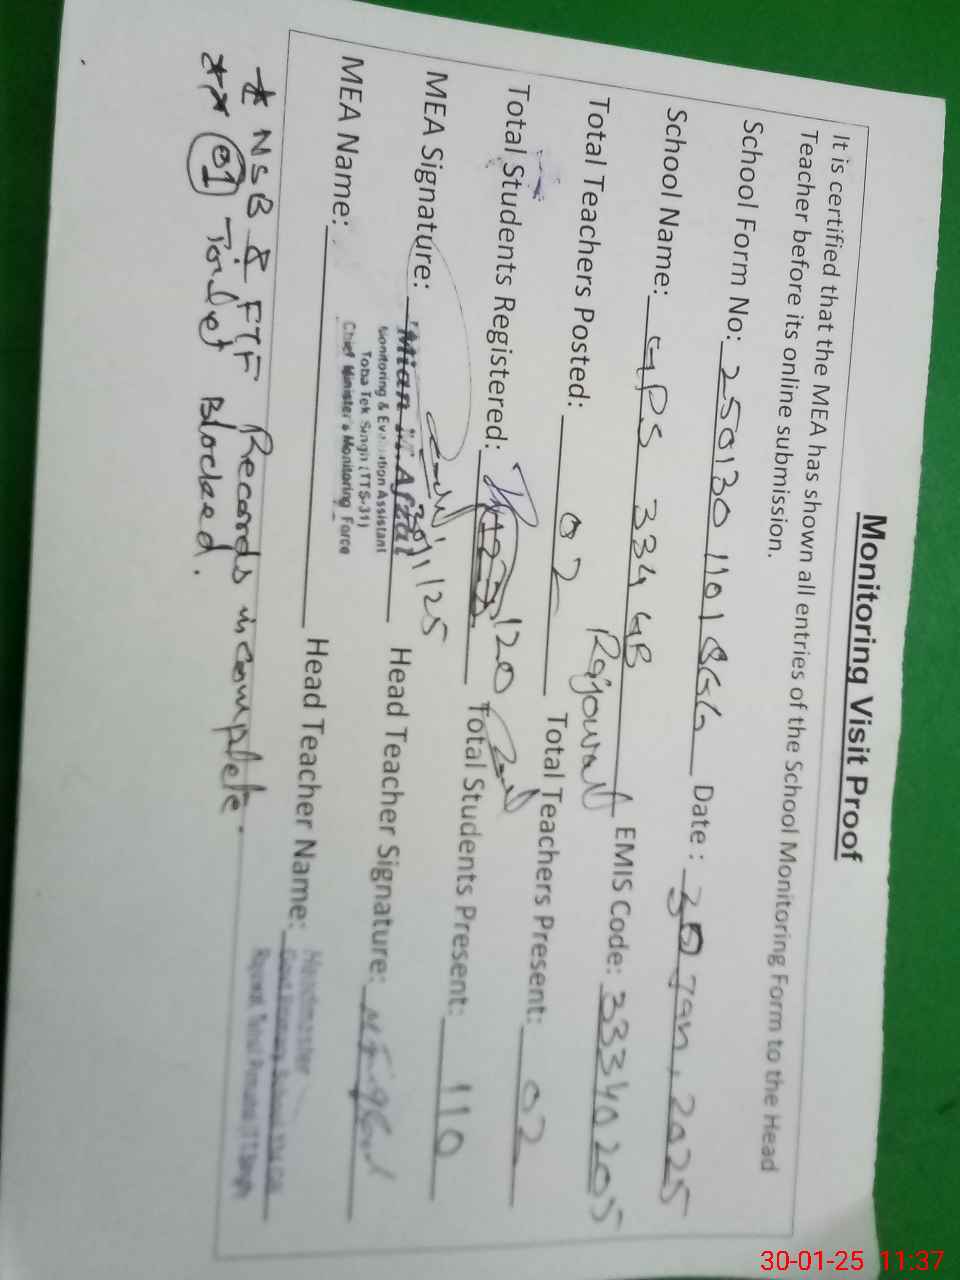 Monitoring Visit Proof
It is certified that the MEA has shown all entries of the School Monitoring Form to the Head
Teacher before its online submission.
School Form No: Date: 30 Jan, 2025
School Name: GPS 334 GB Rajowal EMIS Code: 33340205
Total Teachers Posted: 02 Total Teachers Present: 02
Total Students Registered: 120 Total Students Present: 110
MEA Signature: 30/1/25 Head Teacher Signature:
Mian M. Afzal
Monitoring & Evaluation Assistant
Toba Tek Singh (TTS-31)
Chief Minister's Monitoring Force
MEA Name: Head Teacher Name:
Headmaster
* NSB & FTF Records incomplete.
** 01 Toilet Blocked.
30-01-25 11:37